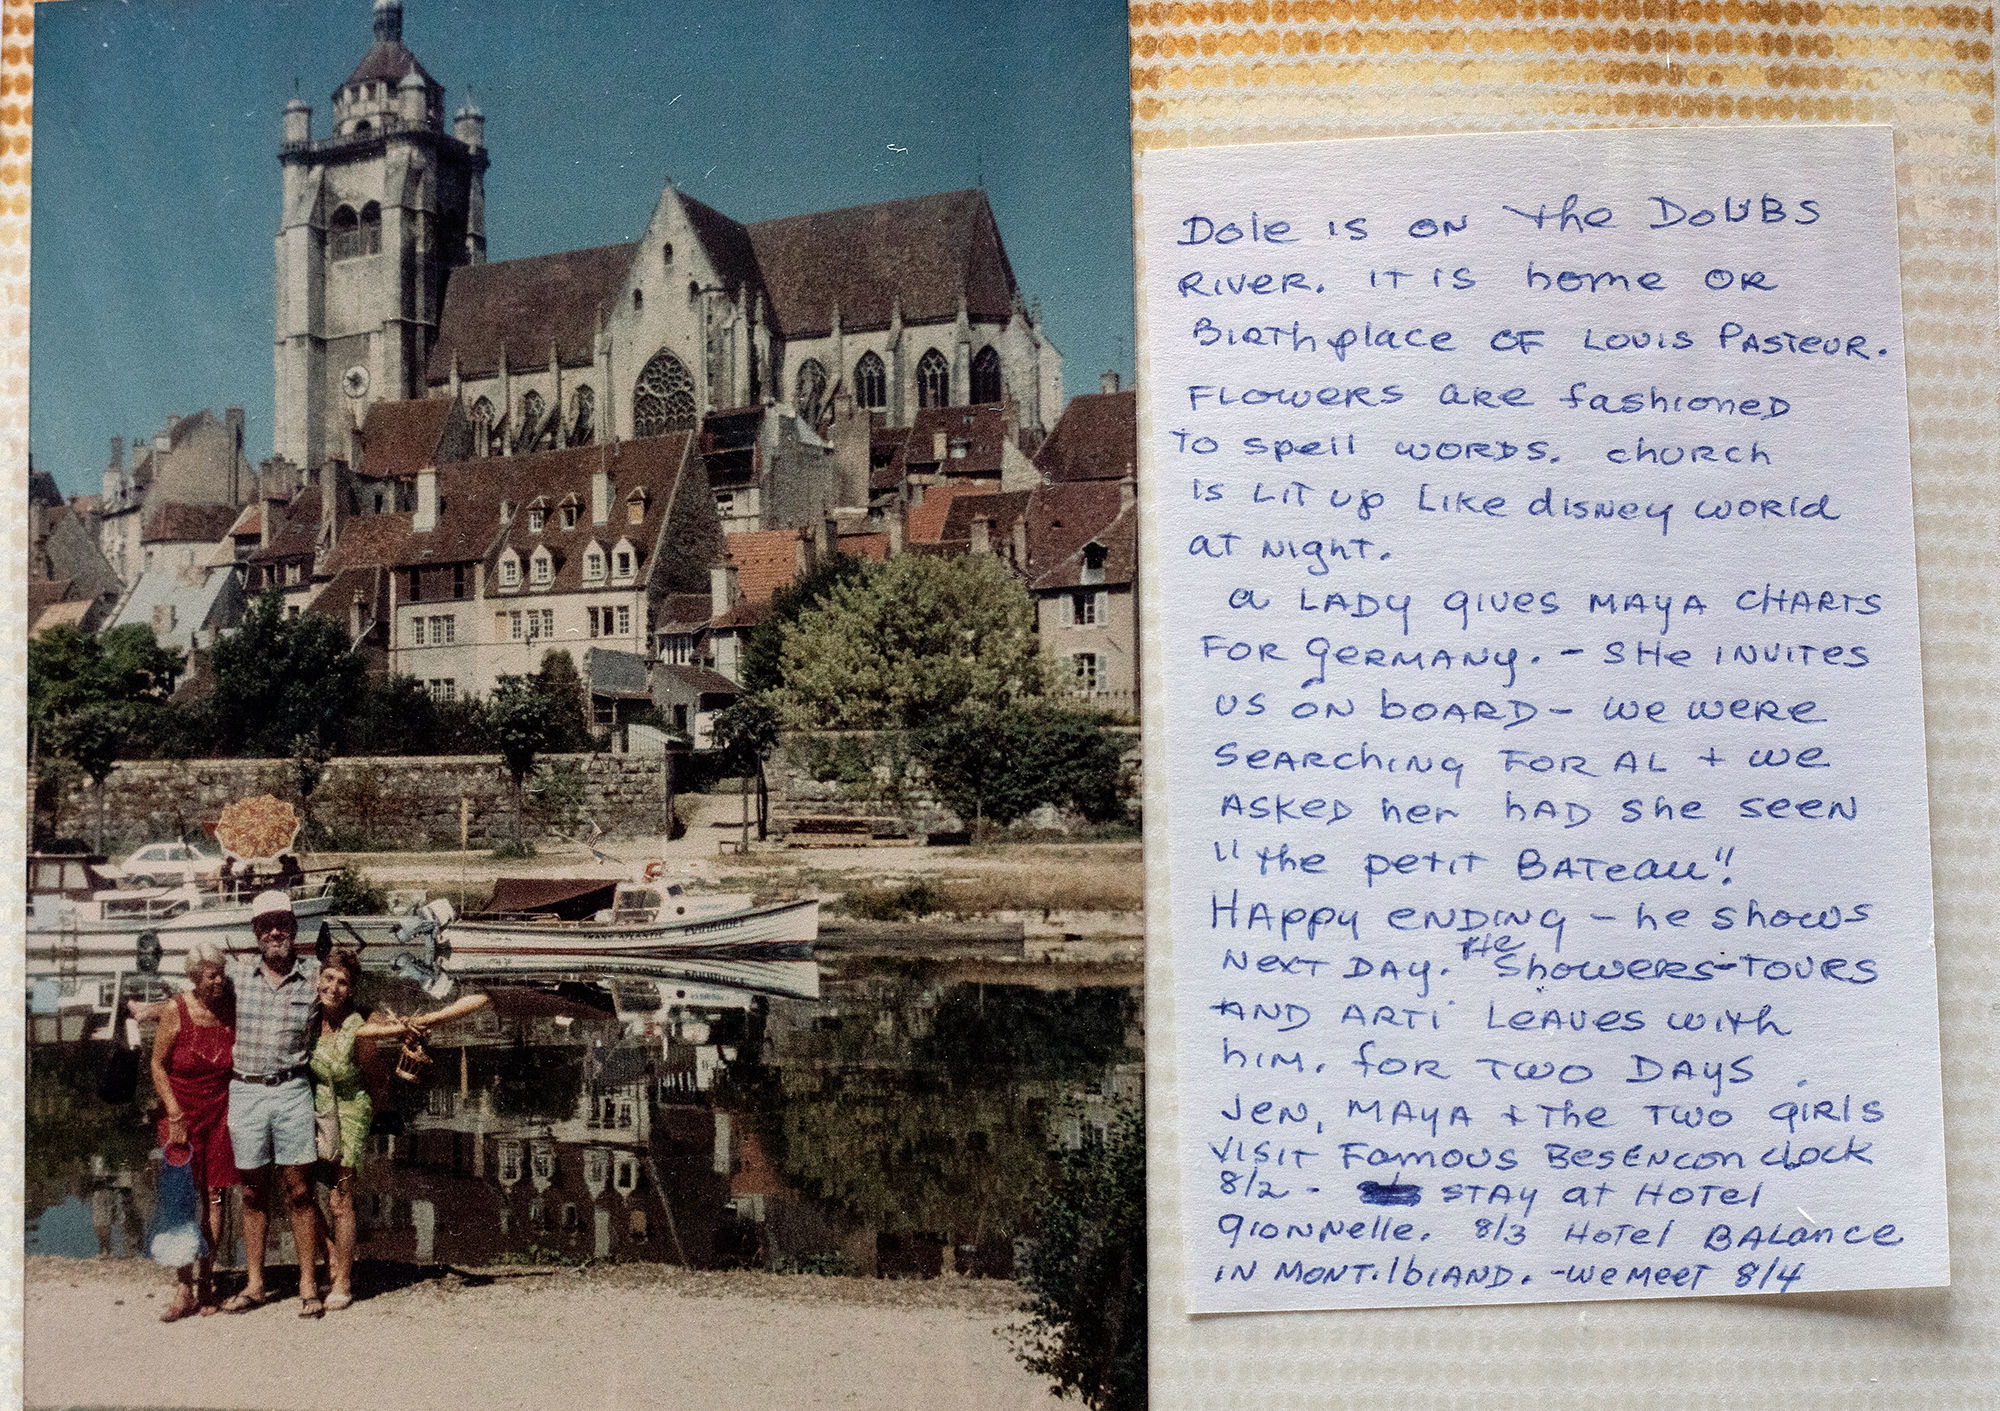 Dole is on the Doubs
River. It is home or
Birthplace of Louis Pasteur.
Flowers are fashioned
to spell words. church
is Lit up Like disney world
at Night.
a LADy gives MAyA CHARTS
FOR gERMANy. - SHe INVITES
us on bOARD - we weRe
SeARching FOR AL + we
ASKeD her hAD she seeN
"the petit BATeau"!
HAppy eNDINg - he shows
Next DAy. the Showers-TOURS
AND ARTi LeAVes with
him. foR Two DAYS.
JeN, MAyA + The Two giRls
VisiT Famous BesENcon cLock
8/2 - STAy at HOTel
gionnelle. 8/3 HoTel BALance
IN MONT.lbiAND. -we MeeT 8/4